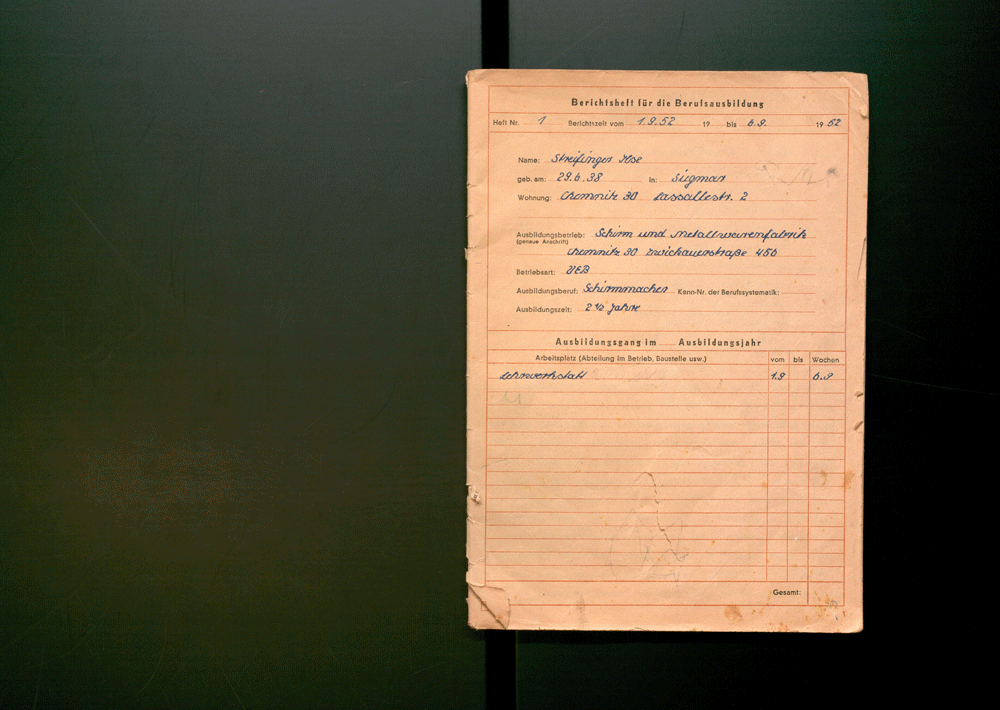 Berichtsheft für die Berufsausbildung
Heft Nr. 1 Berichtszeit vom 1.9.52 19 bis 6.9. 19 52
Name: Streifinger Ilse
geb. am: 29.6.38 In: Siegmar
Wohnung: Chemnitz 30 Lassallestr. 2
Ausbildungsbetrieb: Schirm und Metallwarenfabrik
(genaue Anschrift)
Chemnitz 30 Zwickauerstraße 450
Betriebsart: VEB
Ausbildungsberuf: Schirmmacher Kenn-Nr. der Berufssystematik:
Ausbildungszeit: 2 ½ Jahre
Ausbildungsgang im Ausbildungsjahr
Arbeitsplatz (Abteilung im Betrieb, Baustelle usw.) vom bis Wochen
Lehrwerkstatt 1.9 6.9
Gesamt: